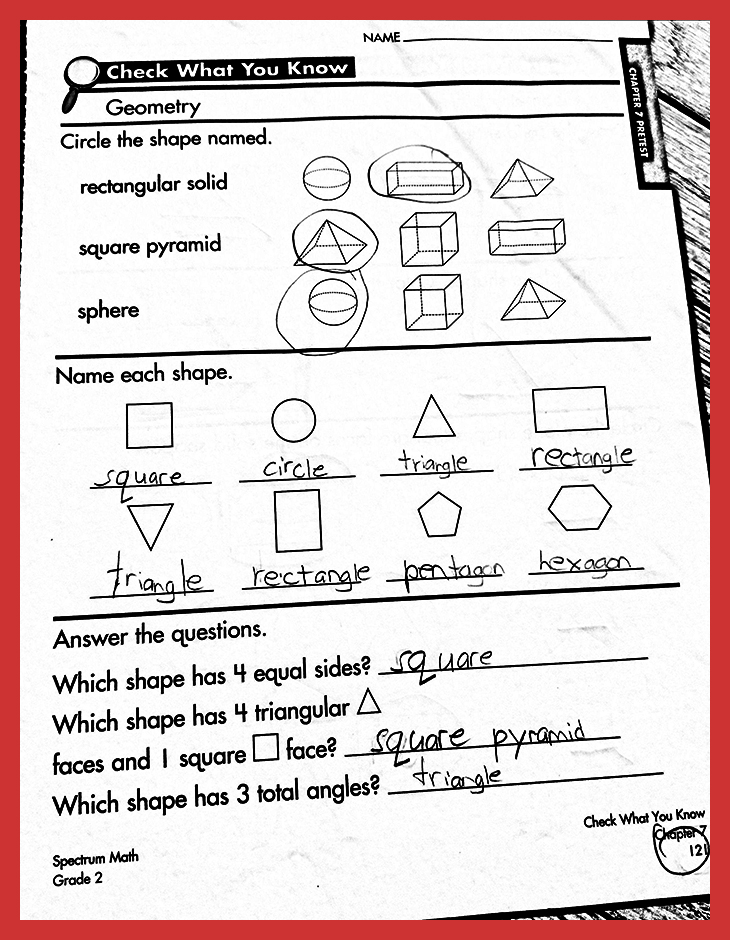 NAME
Check What You Know
CHAPTER 7 PRETEST
Geometry
Circle the shape named.
rectangular solid
square pyramid
sphere
Name each shape.
square circle triangle rectangle
triangle rectangle pentagon hexagon
Answer the questions.
Which shape has 4 equal sides? square
Which shape has 4 triangular
faces and 1 square face? square pyramid
Which shape has 3 total angles? triangle
Check What You Know
Chapter 7
121
Spectrum Math
Grade 2